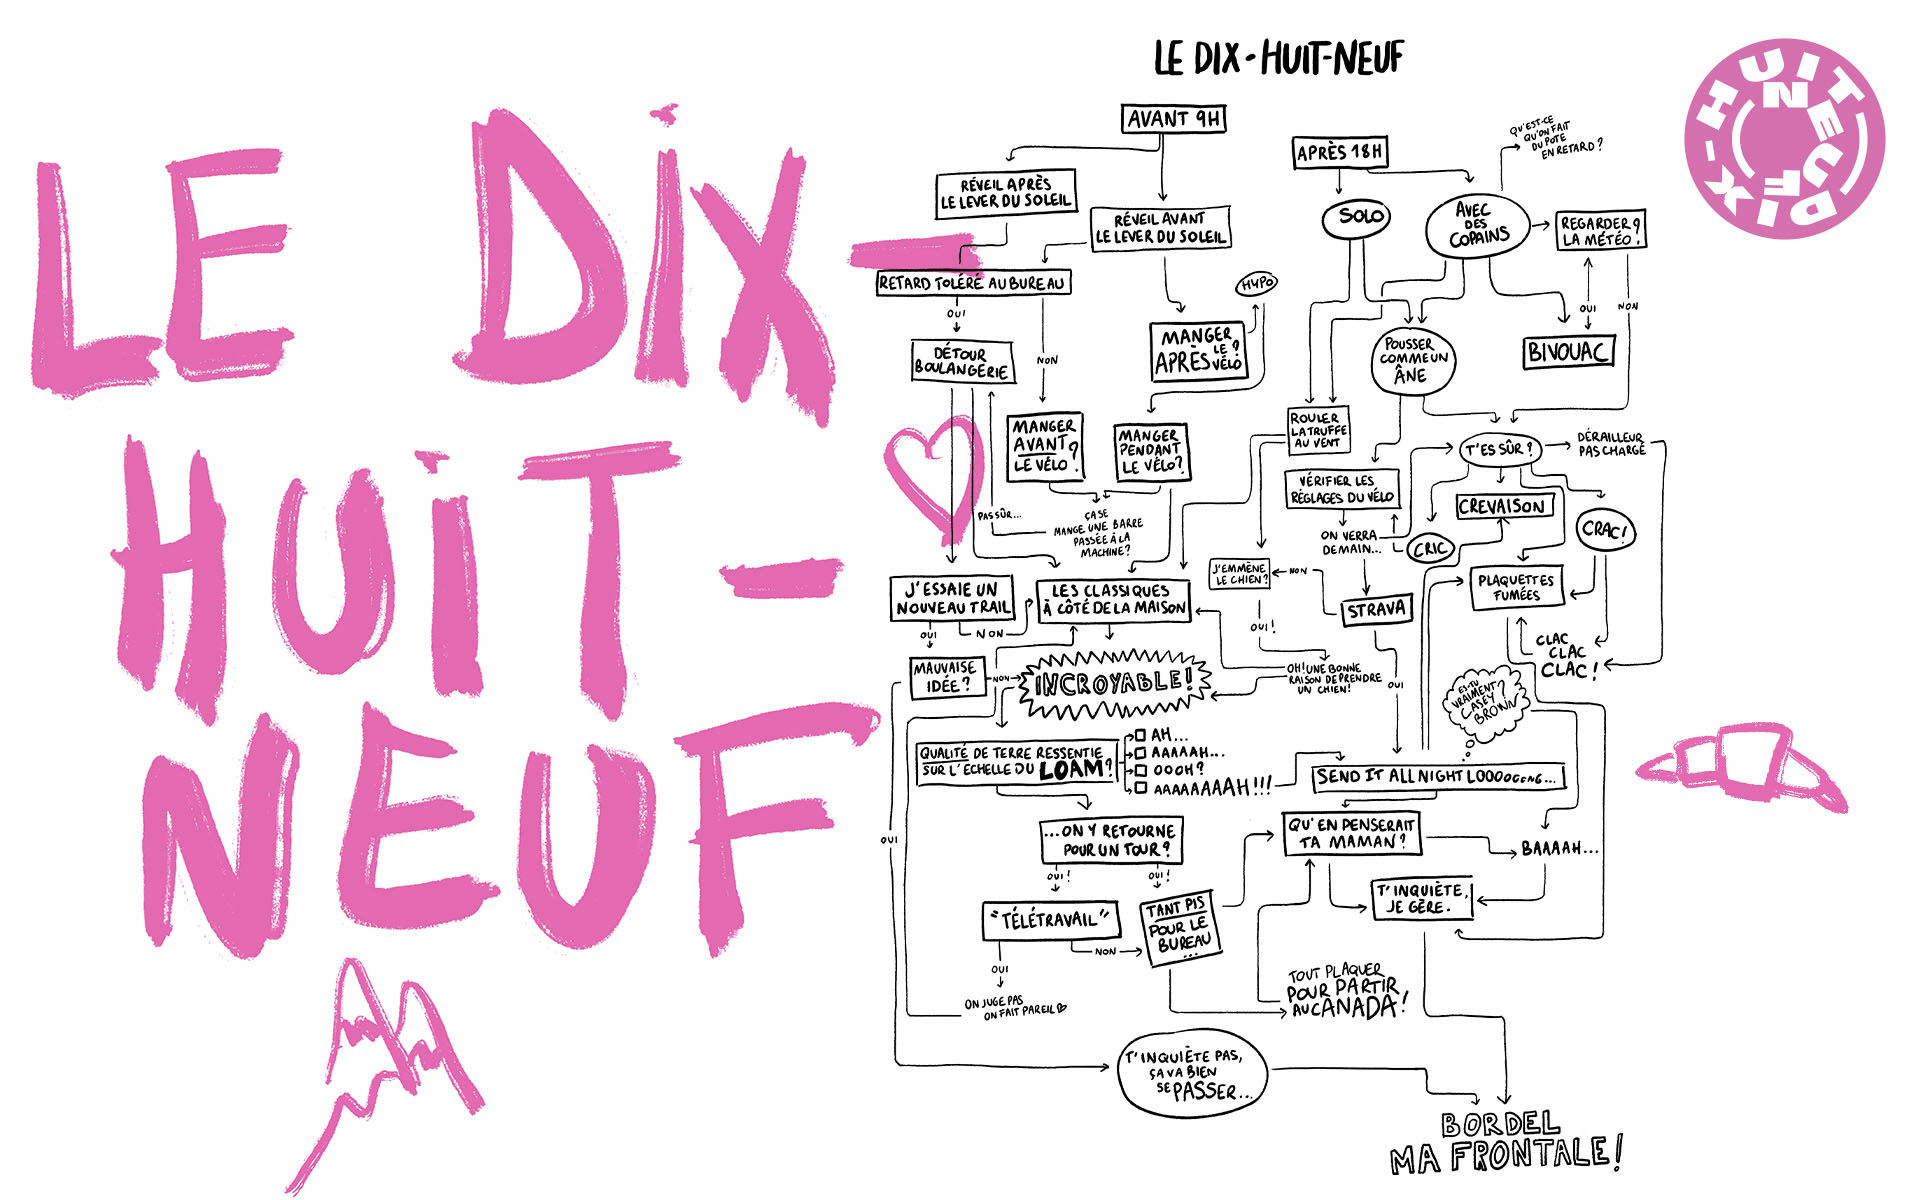 LE DIX-
HUIT-
NEUF
LE DIX-HUIT-NEUF
HUIT-NEUF
DIX-
AVANT 9H
RÉVEIL APRÈS
LE LEVER DU SOLEIL
RÉVEIL AVANT
LE LEVER DU SOLEIL
RETARD TOLÉRÉ AU BUREAU
OUI
NON
DÉTOUR
BOULANGERIE
MANGER
APRÈS LE VÉLO?
HYPO
MANGER
AVANT
LE VÉLO?
MANGER
PENDANT
LE VÉLO?
PAS SÛR...
ÇA SE
MANGE UNE BARRE
PASSÉE À LA
MACHINE?
J'ESSAIE UN
NOUVEAU TRAIL
OUI
NON
LES CLASSIQUES
À CÔTÉ DE LA MAISON
MAUVAISE
IDÉE?
NON
OUI
INCROYABLE!
QUALITÉ DE TERRE RESSENTIE
SUR L'ÉCHELLE DU LOAM?
AH...
AAAAAH...
OOOH?
AAAAAAAAH!!!
...ON Y RETOURNE
POUR UN TOUR?
OUI!
OUI!
"TÉLÉTRAVAIL"
NON
OUI
TANT PIS
POUR LE
BUREAU
...
ON JUGE PAS
ON FAIT PAREIL
TOUT PLAQUER
POUR PARTIR
AU CANADA!
T'INQUIÈTE PAS,
ÇA VA BIEN
SE PASSER...
APRÈS 18H
QU'EST-CE
QU'ON FAIT
DU POTE
EN RETARD?
SOLO
AVEC
DES
COPAINS
REGARDER
LA MÉTÉO?
OUI
NON
BIVOUAC
POUSSER
COMME UN
ÂNE
ROULER
LA TRUFFE
AU VENT
T'ES SÛR?
DÉRAILLEUR
PAS CHARGÉ
VÉRIFIER LES
RÉGLAGES DU VÉLO
CREVAISON
CRAC!
ON VERRA
DEMAIN...
CRIC
J'EMMÈNE
LE CHIEN?
NON
PLAQUETTES
FUMÉES
STRAVA
OUI!
CLAC
CLAC
CLAC!
OH! UNE BONNE
RAISON DE PRENDRE
UN CHIEN!
OUI
ES-TU
VRAIMENT
CASEY
BROWN?
SEND IT ALL NIGHT LOOOOGGNG...
QU'EN PENSERAIT
TA MAMAN?
BAAAAH...
T'INQUIÈTE,
JE GÈRE.
BORDEL
MA FRONTALE!